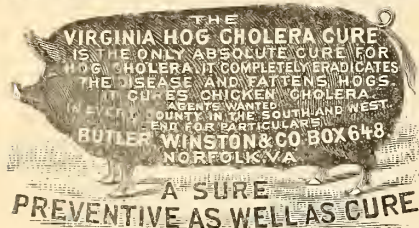 THE
VIRGINIA HOG CHOLERA CURE
IS THE ONLY ABSOLUTE CURE FOR
HOG CHOLERA. IT COMPLETELY ERADICATES
THE DISEASE AND FATTENS HOGS.
IT CURES CHICKEN CHOLERA.
AGENTS WANTED
IN EVERY COUNTY IN THE SOUTH AND WEST.
SEND FOR PARTICULARS
BUTLER, WINSTON & CO. BOX 648
NORFOLK, VA
A SURE
PREVENTIVE AS WELL AS CURE